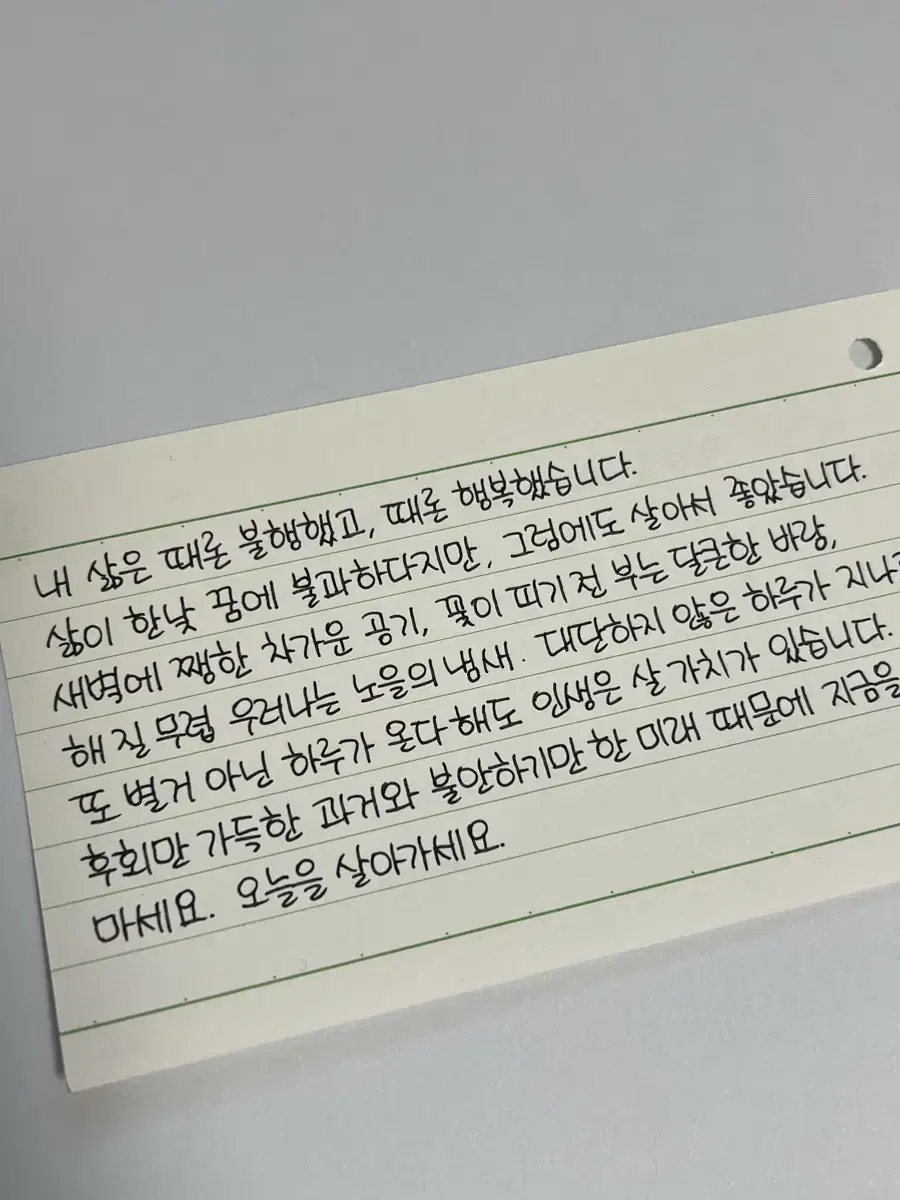 내 삶은 때론 불행했고, 때론 행복했습니다.
삶이 한낮 꿈에 불과하다지만, 그럼에도 살아서 좋았습니다.
새벽에 쨍한 차가운 공기, 꽃이 피기 전 부는 달큰한 바람,
해 질 무렵 우러나는 노을의 냄새. 대단하지 않은 하루가 지나
또 별거 아닌 하루가 온다 해도 인생은 살 가치가 있습니다.
후회만 가득한 과거와 불안하기만 한 미래 때문에 지금을
마세요. 오늘을 살아가세요.